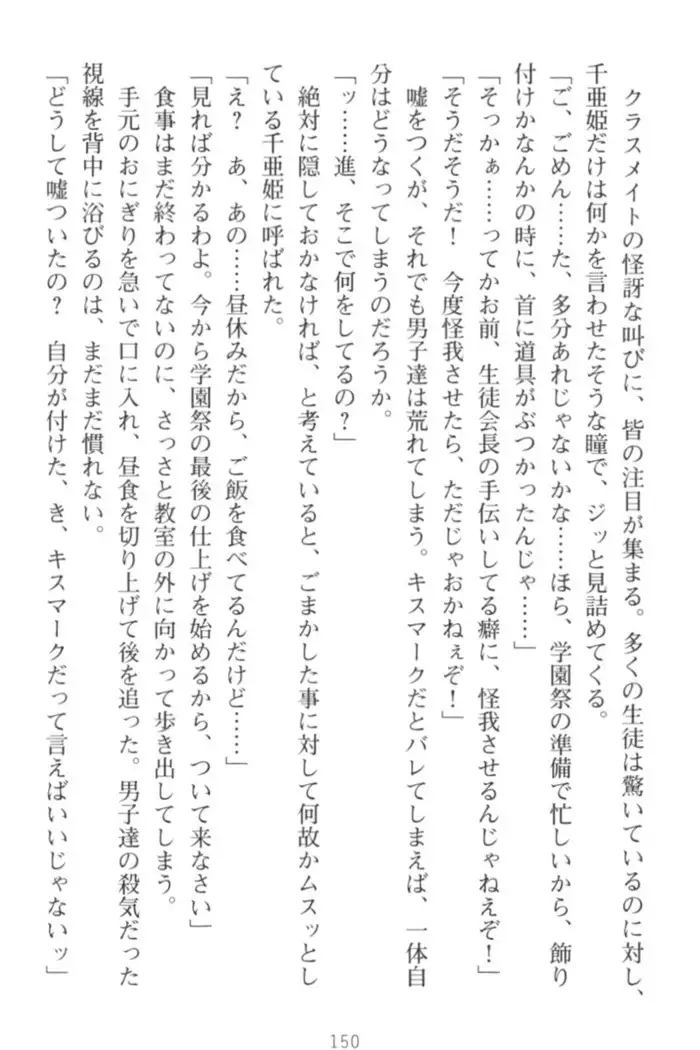 クラスメイトの怪訝な叫びに、皆の注目が集まる。多くの生徒は驚いているのに対し、
千亜姫だけは何かを言わせたそうな瞳で、ジッと見詰めてくる。
「ご、ごめん……た、多分あれじゃないかな……ほら、学園祭の準備で忙しいから、飾り
付けかなんかの時に、首に道具がぶつかったんじゃ……」
「そっかぁ……ってかお前、生徒会長の手伝いしてる癖に、怪我させるんじゃねえぞ！」
「そうだそうだ！　今度怪我させたら、ただじゃおかねぇぞ！」
嘘をつくが、それでも男子達は荒れてしまう。キスマークだとバレてしまえば、一体自
分はどうなってしまうのだろうか。
「ッ……進、そこで何をしてるの？」
絶対に隠しておかなければ、と考えていると、ごまかした事に対して何故かムスッとし
ている千亜姫に呼ばれた。
「え？　あ、あの……昼休みだから、ご飯を食べてるんだけど……」
「見れば分かるわよ。今から学園祭の最後の仕上げを始めるから、ついて来なさい」
食事はまだ終わってないのに、さっさと教室の外に向かって歩き出してしまう。
手元のおにぎりを急いで口に入れ、昼食を切り上げて後を追った。男子達の殺気だった
視線を背中に浴びるのは、まだまだ慣れない。
「どうして嘘ついたの？　自分が付けた、き、キスマークだって言えばいいじゃないッ」
150